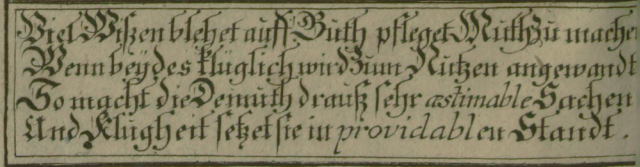 Viel Wißen blehet auff Guth pfleget Muth zu machen
Wenn beydes klüglich wird zum Nutzen angewandt
So macht die Demuth drauß sehr æstimable Sachen
Und Klugheit setzet sie in providablen Standt.